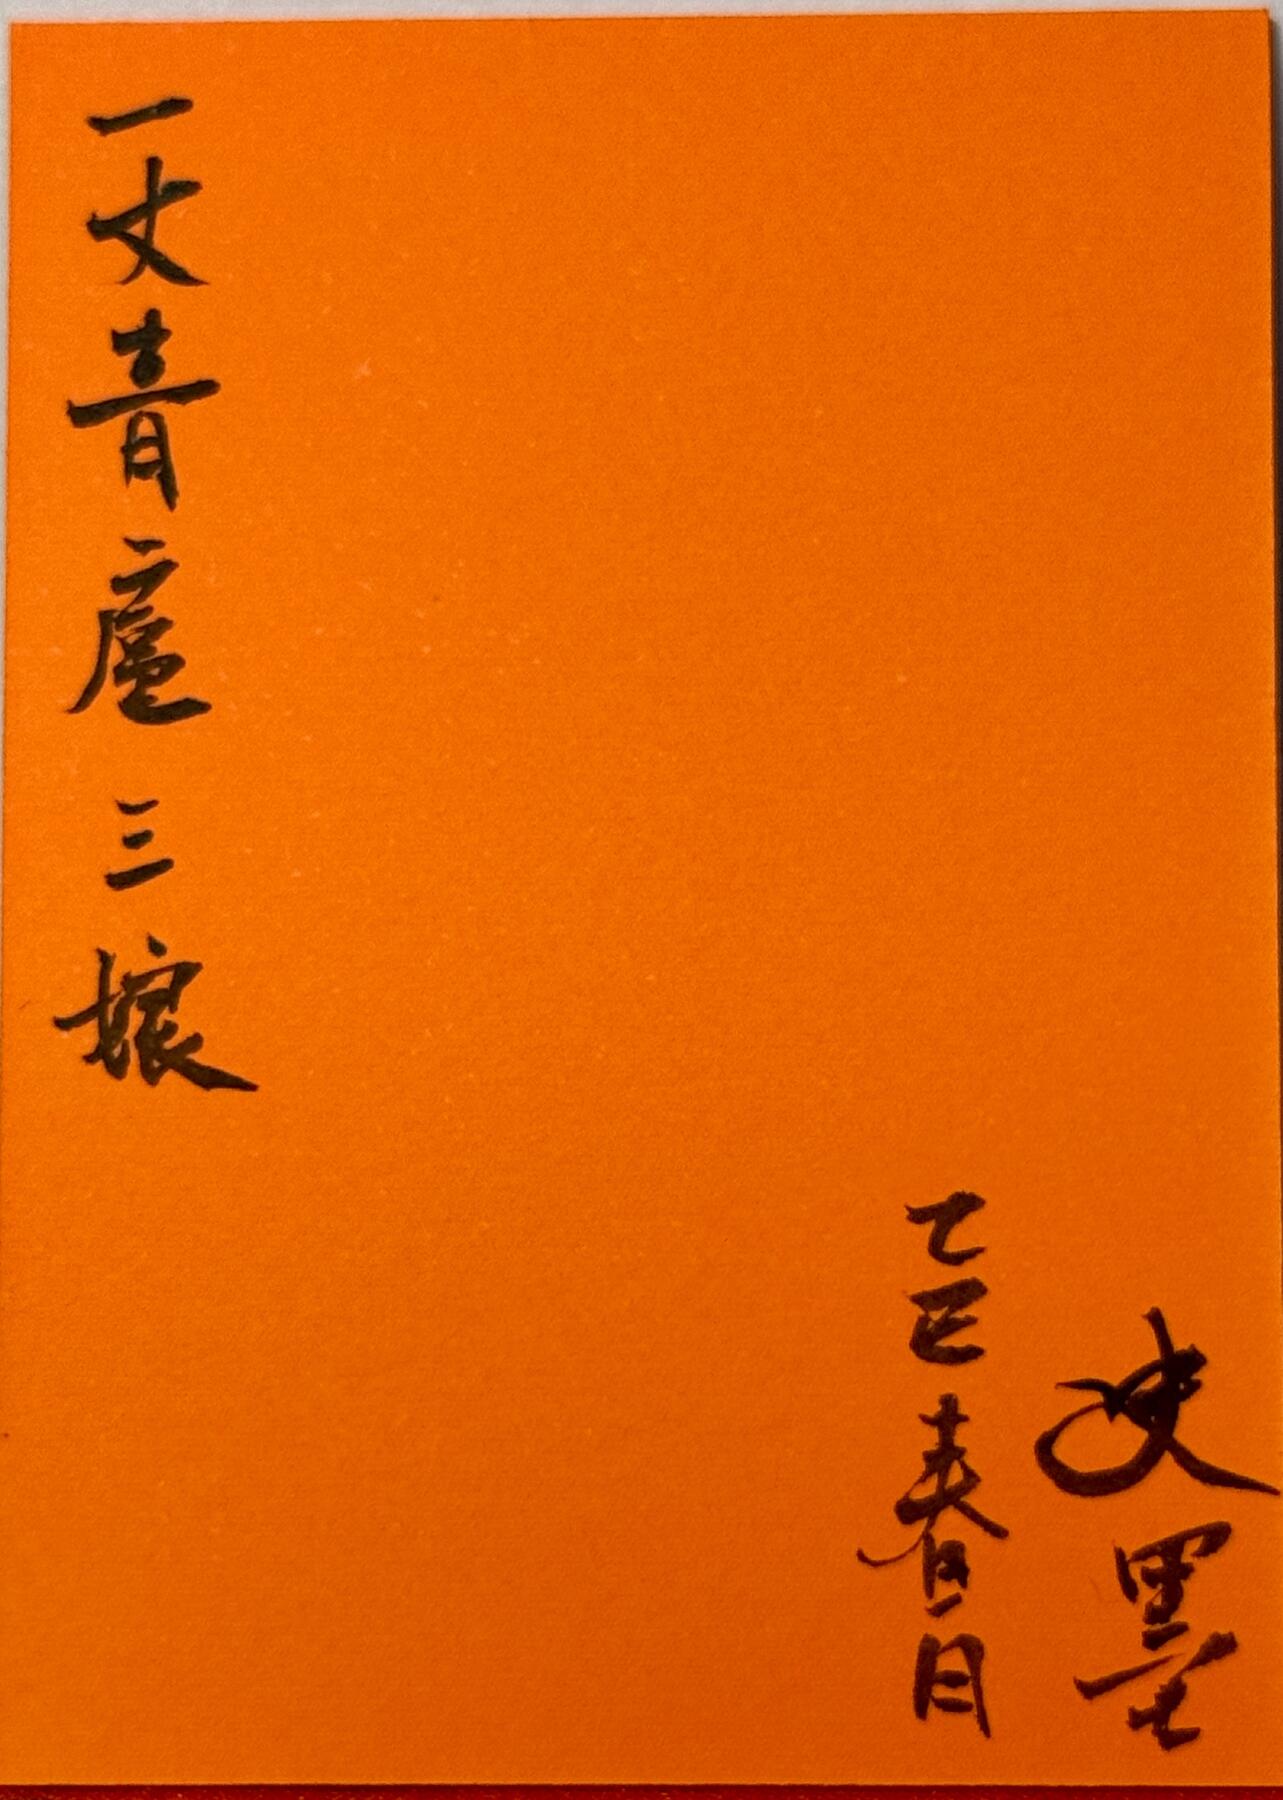 一丈青扈三娘
乙巳春一月
史墨